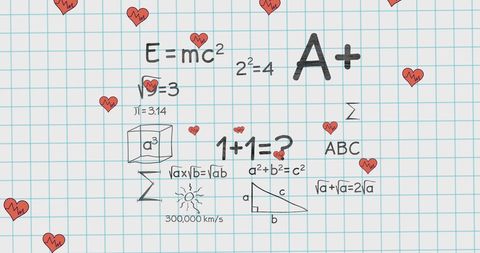 E=mc²
2²=4
A+
√9=3
π=3.14
∑
a³
1+1=?
ABC
∑
√ax√b=√ab
a²+b²=c²
√a+√a=2√a
a
c
b
300,000 km/s